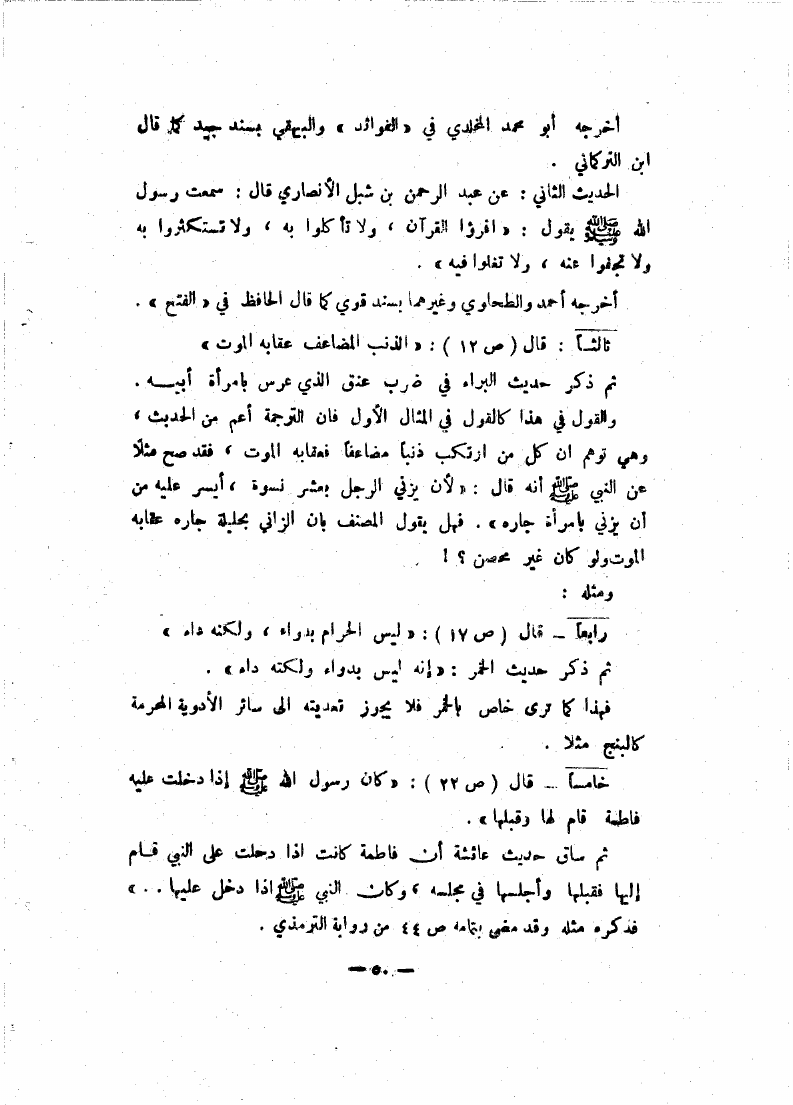 أخرجه أبو محمد المخلدي في «الفوائد» والبيهقي بسند جيد كما قال
ابن التركماني .
الحديث الثاني : عن عبد الرحمن بن شبل الأنصاري قال : سمعت رسول
الله ﷺ يقول : « اقرؤا القرآن ، ولا تأكلوا به ، ولا تستكثروا به
ولا تجفوا عنه ، ولا تغلوا فيه » .
أخرجه أحمد والطحاوي وغيرهما بسند قوي كما قال الحافظ في « الفتح » .
ثالثاً : قال ( ص ١٢ ) : « الذنب المضاعف عقابه الموت »
ثم ذكر حديث البراء في ضرب عنق الذي عرس بامرأة أبيـــه .
والقول في هذا كالقول في المثال الأول فان الترجمة أعم من الحديث ،
وهي توهم ان كل من ارتكب ذنباً مضاعفاً فعقابه الموت ، فقد صح مثلًا
عن النبي ﷺ أنه قال : « لأن يزني الرجل بعشر نسوة ، أيسر عليه من
أن يزني بامرأة جاره » . فهل يقول المصنف بان الزاني بحليلة جاره عقابه
الموت ولو كان غير محصن ؟ !
ومثله :
رابعاً – قال ( ص ١٧ ) : « ليس الحرام بدواء ، ولكنه داء »
ثم ذكر حديث الخمر : « إنه ليس بدواء ولكنه داء » .
فهذا كما ترى خاص بالخمر فلا يجوز تعديته الى سائر الأدوية المحرمة
كالبنج مثلا .
خامساً – قال ( ص ٢٢ ) : « كان رسول الله ﷺ إذا دخلت عليه
فاطمة قام لها وقبلها » .
ثم ساق حديث عائشة أن فاطمة كانت اذا دخلت على النبي قام
إليها فقبلها وأجلسها في مجلسه ، وكان النبي ﷺ اذا دخل عليها . . »
فذكره مثله وقد مضى بتمامه ص ٤٤ من رواية الترمذي .
— ٥٠ —